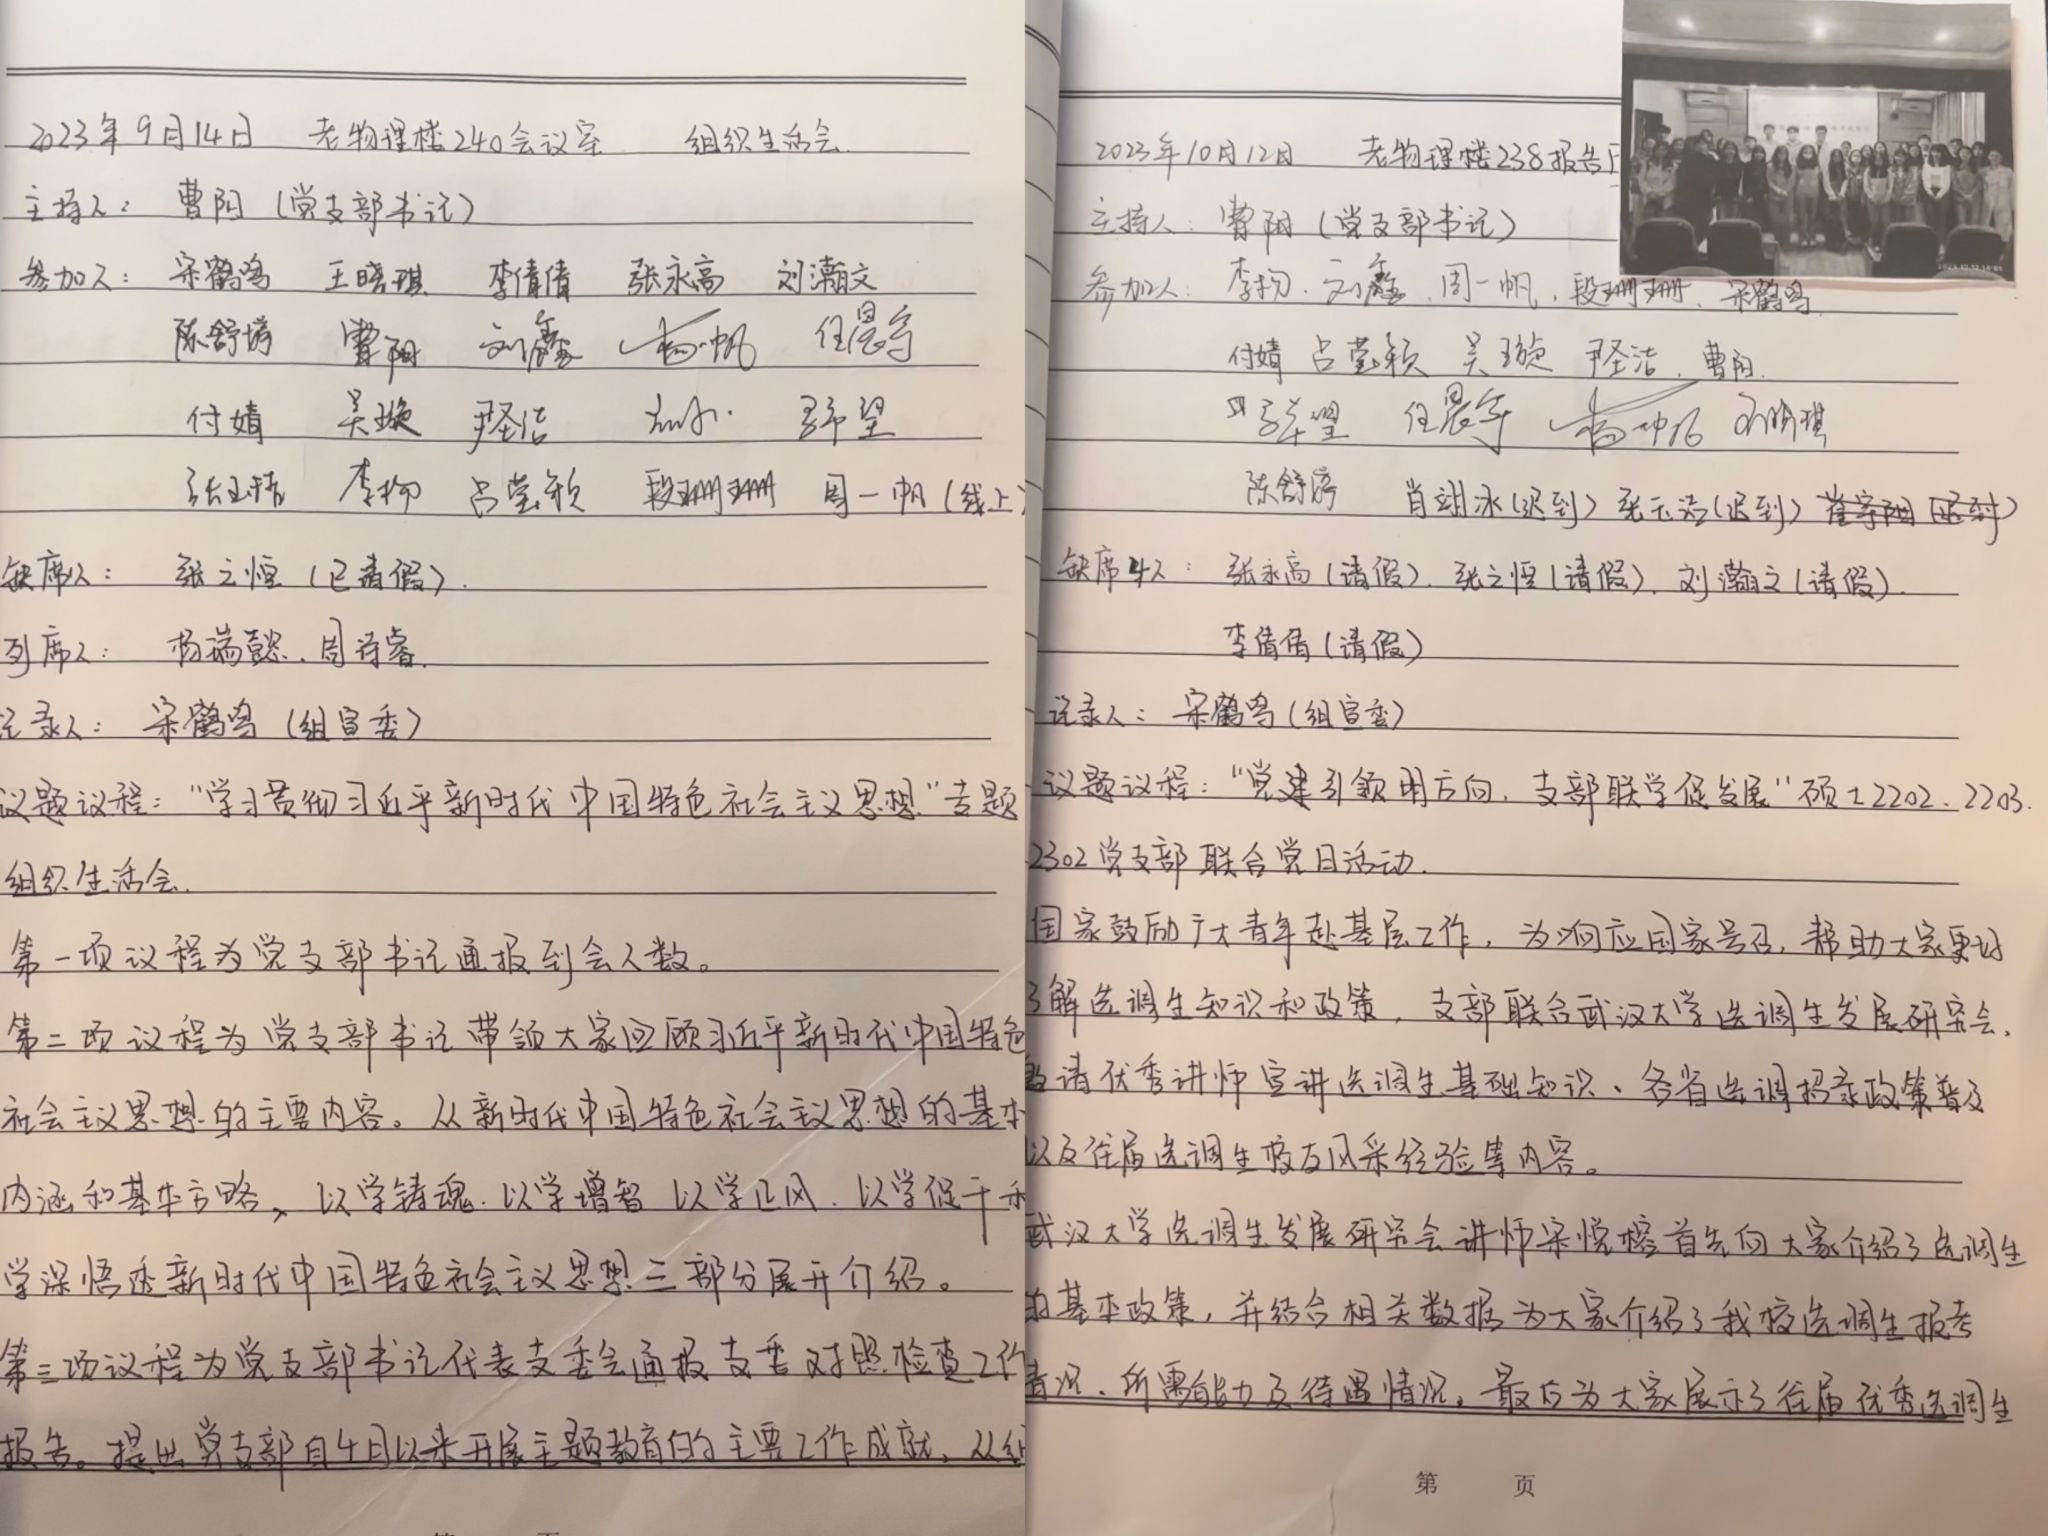 2023年9月14日 老物理楼240会议室 组织生活会
主持人：曹阳（党支部书记）
参加人：宋鹤鸣 王晓琪 李倩倩 张永高 刘瀚文
陈舒婷 曹阳 刘鑫 杨帆 任晨宇
付婧 吴璇 尹圣洁 望
张玉洁 李杨 吕莹颖 段珊珊 周一帆（线上）
缺席人：张之恒（已请假）.
列席人：杨瑞懿、周诗睿.
记录人：宋鹤鸣（组宣委）
议题议程：“学习贯彻习近平新时代中国特色社会主义思想”专题
组织生活会.
第一项议程为党支部书记通报到会人数。
第二项议程为党支部书记带领大家回顾习近平新时代中国特色
社会主义思想的主要内容。从新时代中国特色社会主义思想的基本
内涵和基本方略、以学铸魂.以学增智 以学正风.以学促干和
学深悟透新时代中国特色社会主义思想三部分展开介绍。
第三项议程为党支部书记代表支委会通报支委对照检查工作
报告。提出党支部自4月以来开展主题教育的主要工作成就，从
2023年10月12日 老物理楼238报告
主持人：曹阳（党支部书记）
参加人：李杨.刘鑫.周一帆.段珊珊.宋鹤鸣
付婧 吕莹颖 吴璇 尹圣洁.曹阳.
望 任晨宇 杨帆 王晓琪
陈舒婷 肖翊冰（迟到）张玉洁（迟到）
缺席4人：张永高（请假）.张之恒（请假）.刘瀚文（请假）.
李倩倩（请假）
记录人：宋鹤鸣（组宣委）
议题议程：“党建引领明方向，支部联学促发展”硕士2202、2203.
2302党支部联合党日活动.
国家鼓励广大青年赴基层工作，为响应国家号召，帮助大家更好
了解选调生知识和政策，支部联合武汉大学选调生发展研究会，
邀请优秀讲师宣讲选调生基础知识、各省选调招录政策普及
以及往届选调生校友风采经验等内容。
武汉大学选调生发展研究会讲师宋悦榕首先向大家介绍了选调生
的基本政策，并结合相关数据为大家介绍了我校选调生报考
情况、所需能力及待遇情况。最后为大家展示了往届优秀选调生
第 页